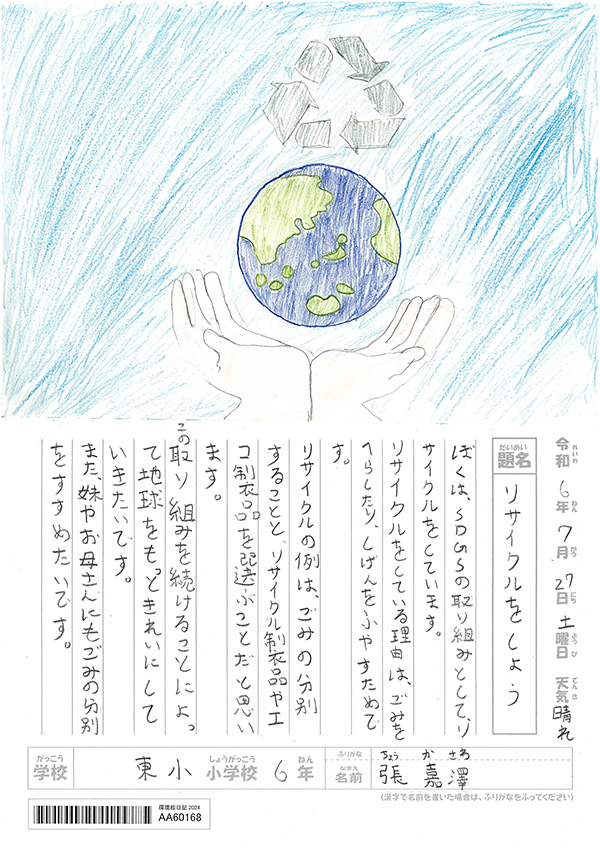 令和6年7月27日土曜日 天気晴れ
れいわ ねん がつ にち ようび てんき
題名 リサイクルをしよう
だいめい
ぼくは、SDGSの取り組みとして、リ
サイクルをしています。
リサイクルをしている理由は、ごみを
へらしたり、しげんをふやすためで
す。
リサイクルの例は、ごみの分別
することと、リサイクル製品やエ
コ製品を選ぶことだと思い
ます。
この取り組みを続けることによっ
て地球をもっときれいにして
いきたいです。
また、妹やお母さんにもごみの分別
をすすめたいです。
がっこう しょうがっこう ねん
学校 東小 小学校 6年
ふりがな ちょう か さわ
なまえ
名前 張 嘉澤
(漢字で名前を書いた場合は、ふりがなをふってください)
環境絵日記 2024
AA60168